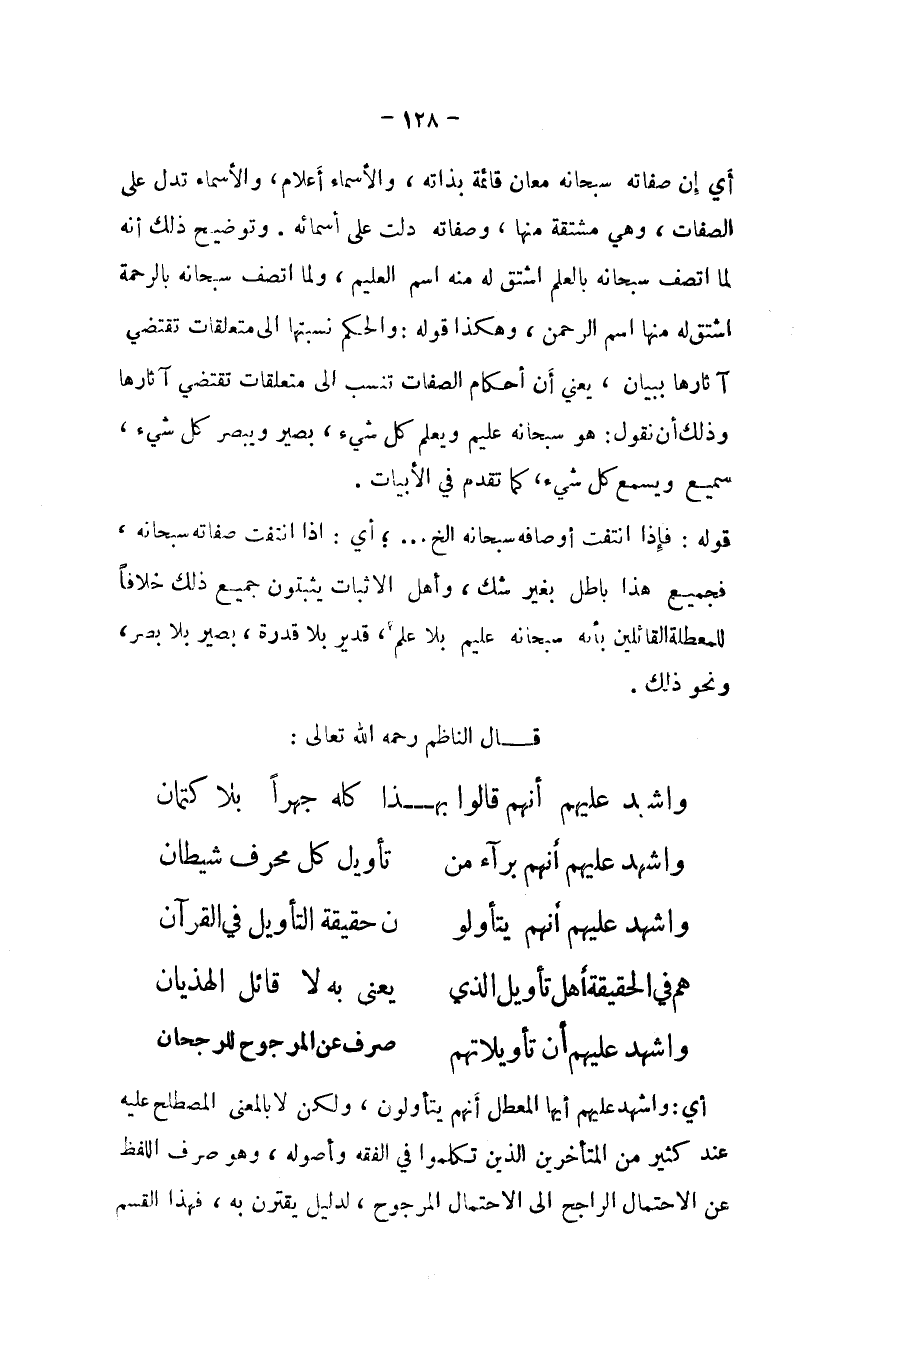 - ١٢٨ -
أي إن صفاته سبحانه معان قائمة بذاته ، والأسماء أعلام، والأسماء تدل على
الصفات ، وهي مشتقة منها ، وصفاته دلت على أسمائه . وتوضيح ذلك أنه
لما اتصف سبحانه بالعلم اشتق له منه اسم العليم ، ولما اتصف سبحانه بالرحمة
اشتق له منها اسم الرحمن ، وهكذا قوله : والحكم نسبتها الى متعلقات تقتضي
آثارها ببيان ، يعني أن أحكام الصفات تنسب الى متعلقات تقتضي آثارها
وذلك أن نقول: هو سبحانه عليم ويعلم كل شيء ، بصير ويبصر كل شيء ،
سميع ويسمع كل شيء، كما تقدم في الأبيات .
قوله : فإذا انتفت أوصافه سبحانه الخ... ؛ أي : اذا انتفت صفاته سبحانه ،
فجميع هذا باطل بغير شك ، وأهل الاثبات يثبتون جميع ذلك خلافاً
للمعطلة القائلين بأنه سبحانه عليم بلا علم ، قدير بلا قدرة ، بصير بلا بصر،
ونحو ذلك .
قـــال الناظم رحمه الله تعالى :
واشهد عليهم أنهم قالوا بهـــذا كله جهراً بلا كتمان
واشهد عليهم أنهم برآء من تأويل كل محرف شيطان
واشهد عليهم أنهم يتأولو ن حقيقة التأويل في القرآن
هم في الحقيقة أهل تأويل الذي يعنى به لا قائل الهذيان
واشهد عليهم أن تأويلاتهم صرف عن المرجوح للرجحان
أي: واشهد عليهم أيها المعطل أنهم يتأولون ، ولكن لا بالمعنى المصطلح عليه
عند كثير من المتأخرين الذين تكلموا في الفقه وأصوله ، وهو صرف اللفظ
عن الاحتمال الراجح الى الاحتمال المرجوح ، لدليل يقترن به ، فهذا القسم